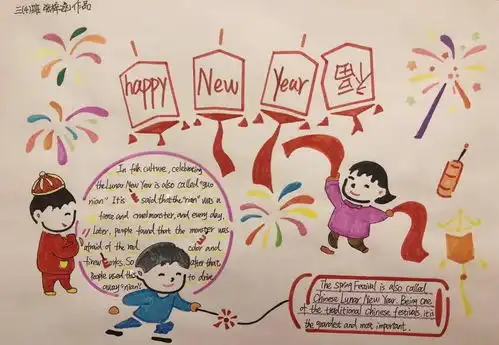 三(4)班 作品
happy New Year 福
In folk culture, celebrating
the Lunar New Year is also called "guo
nian". It is said that the "nian" was a
fierce and cruel monster, and every day,
later, people found that the monster was
afraid of the red color and
fireworks. So after that
People used the to drive
away "nian".
The spring Festival is also called
Chinese Lunar New Year. Being one
of the traditional Chinese festivals, it is
the grandest and most important.